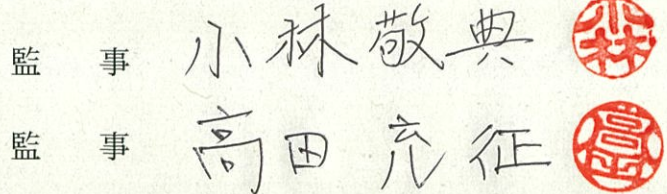 監 事 小林敬典 小林
監 事 高田充征 高田